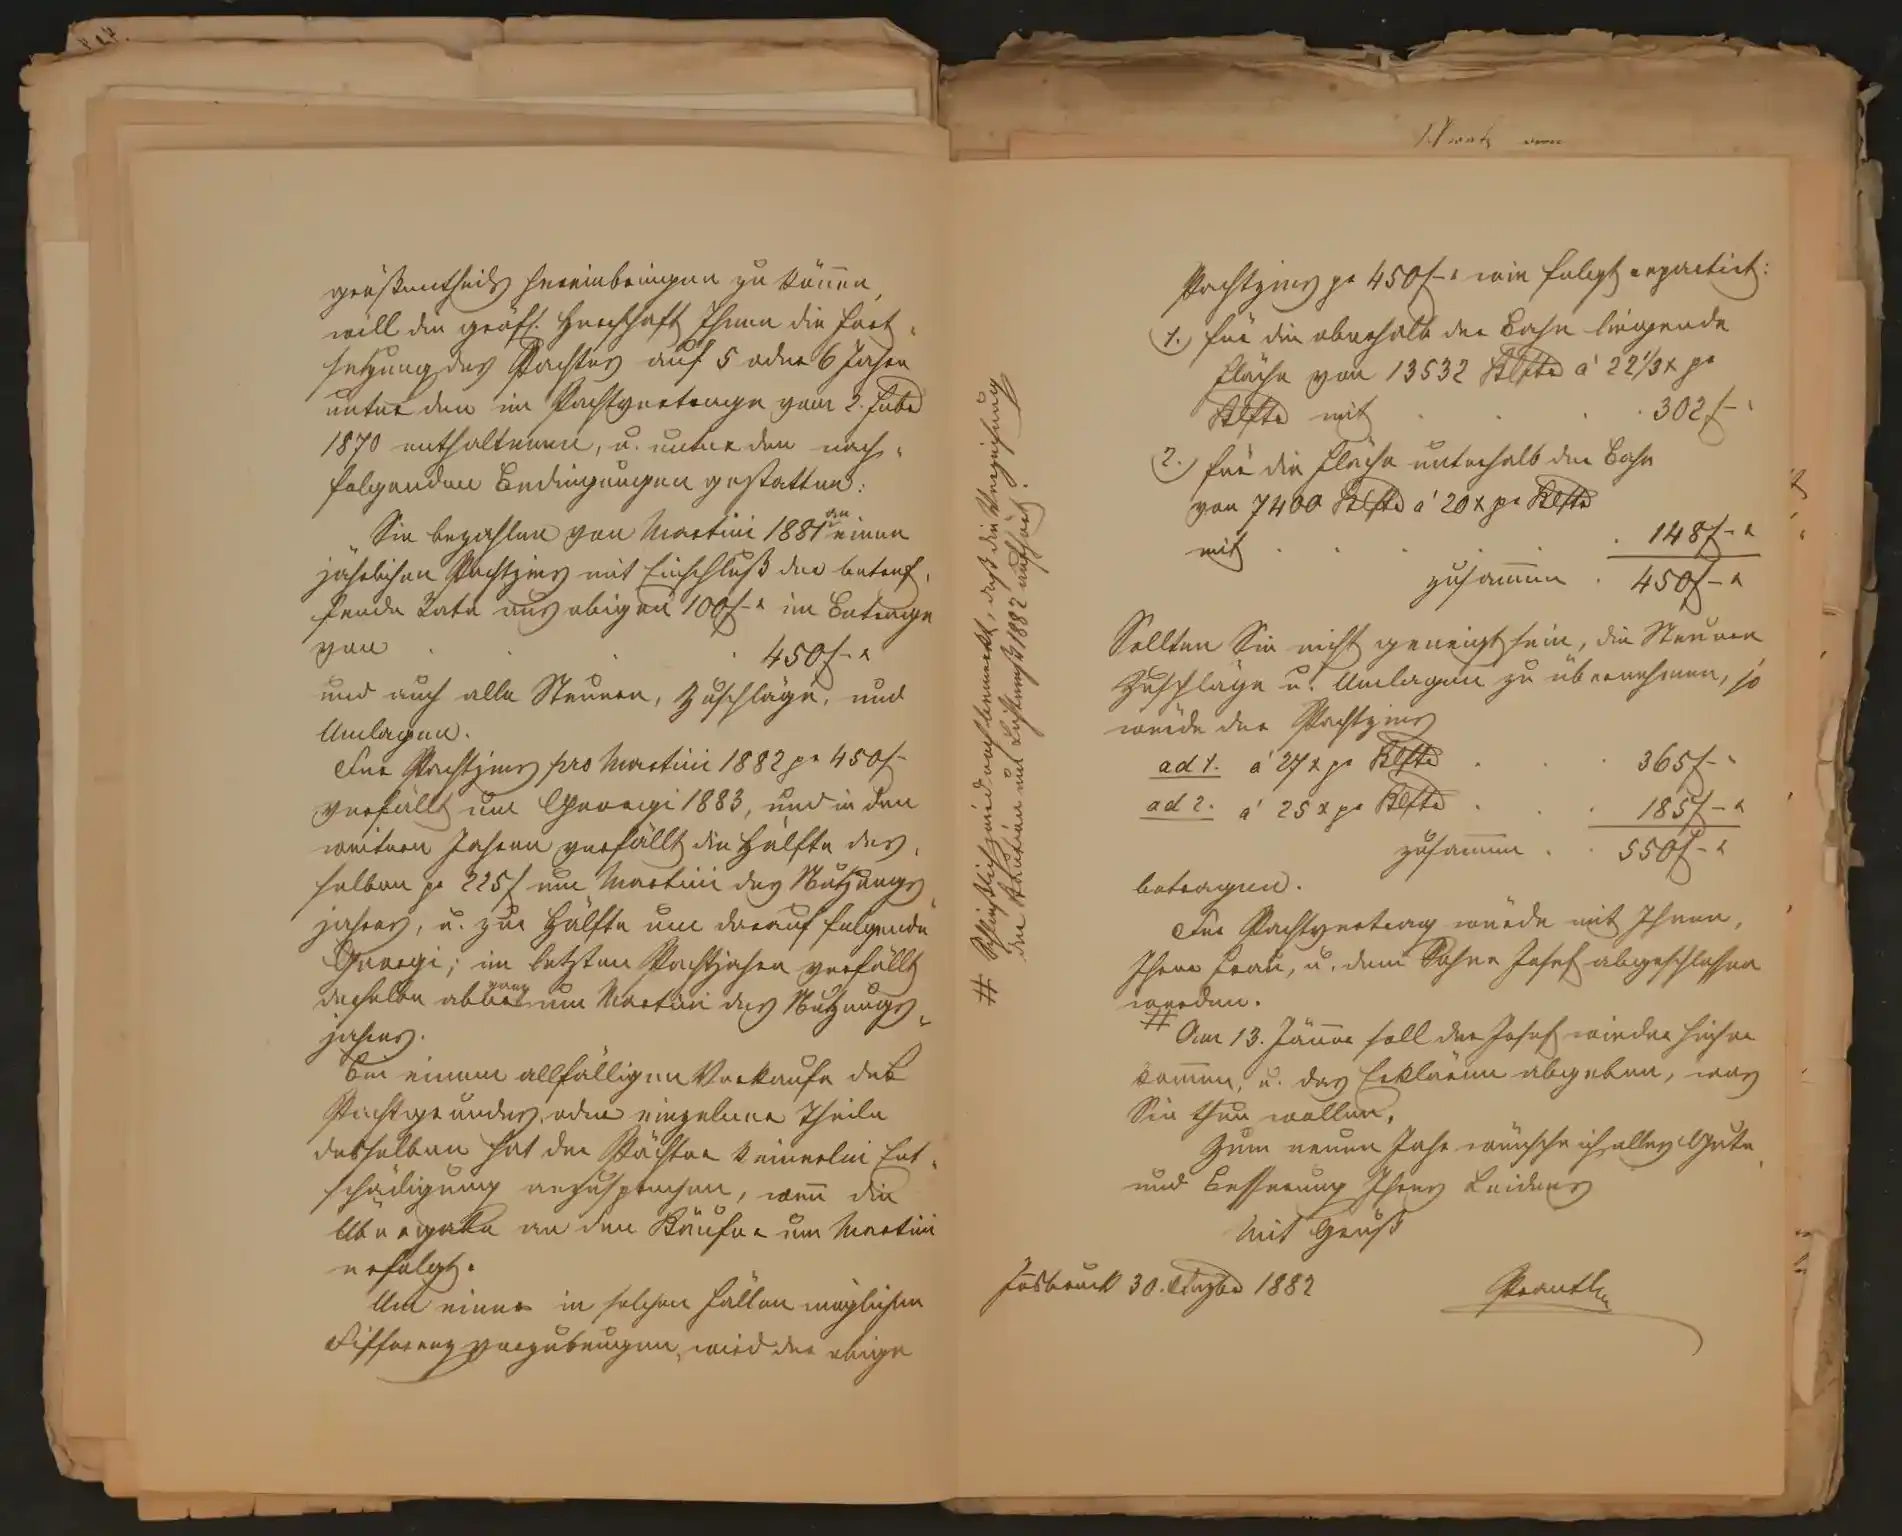 größentheils hereinbringen zu können,
will die gräfl. Herrschaft Ihnen die Fort-
setzung des Pachtes auf 5 oder 6 Jahre
unter den im Pachtvertrage vom 2. Febr
1870 enthaltenen, u. unter den nach-
folgenden Bedingungen gestatten:
Sie bezahlen von Martini 1881 an einen
jährlichen Pachtzins mit Einschluß der betref-
fende Rate aus obigen 100f- im Betrage
von . . . 450f-
und auch alle Steuern, Zuschläge, und
Umlagen.
Der Pachtzins pro Martini 1882 pr 450f-
verfällt um Georgi 1883, und in den
weitern Jahren verfällt die Hälfte des-
selben pr 225f um Martini des Nutzungs
jahres, u. zur Hälfte um darauf folgende
Georgi; im letzten Pachtjahre verfällt
derselbe aber ganz um Martini des Nutzungs-
jahres.
Bei einem allfälligen Verkaufe des
Pachtgrundes, oder einzelner Theile
desselben hat der Pächter keinerlei Ent-
schädigung anzusprechen, wenn die
Übergabe an den Käufer um Martini
erfolgt.
Um einer in solchen Fällen möglichen
Differenz vorzubeugen, wird der obige
# Schließlich wird noch bemerkt, daß die Verzeihung
der um Lichtmeß 1882 aufhört.
Pachtzins pr 450f- wie folgt repartirt:
1.) für die oberhalb der Bahn liegende
Fläche von 13532 Klftr à 22 1/3 x pr
Klftr mit . . . 302f-
2.) für die Fläche unterhalb der Bahn
von 7400 Klftr à 20 x pr Klftr
mit . . . 148f-
zusammen . 450f-
Sollten Sie nicht geneigt sein, die Steuern
Zuschläge u. Umlagen zu übernehmen, so
würde der Pachtzins
ad 1. à 27 x pr Klftr . . . 365f-
ad 2. à 25 x pr Klftr . . . 185f-
zusammen . . 550f-
betragen.
Der Pachtvertrag würde mit Ihnen,
Ihrer Frau, u. dem Sohne Josef abgeschlossen
werden.
# Am 13. Jänner soll der Josef wieder hieher
kommen, u. das Erklären abgeben, was
Sie thun wollen.
Zum neuen Jahr wünsche ich alles Gute
und Besserung Ihres Leidens
Mit Gruß
Insbruck 30. Dezbr 1882